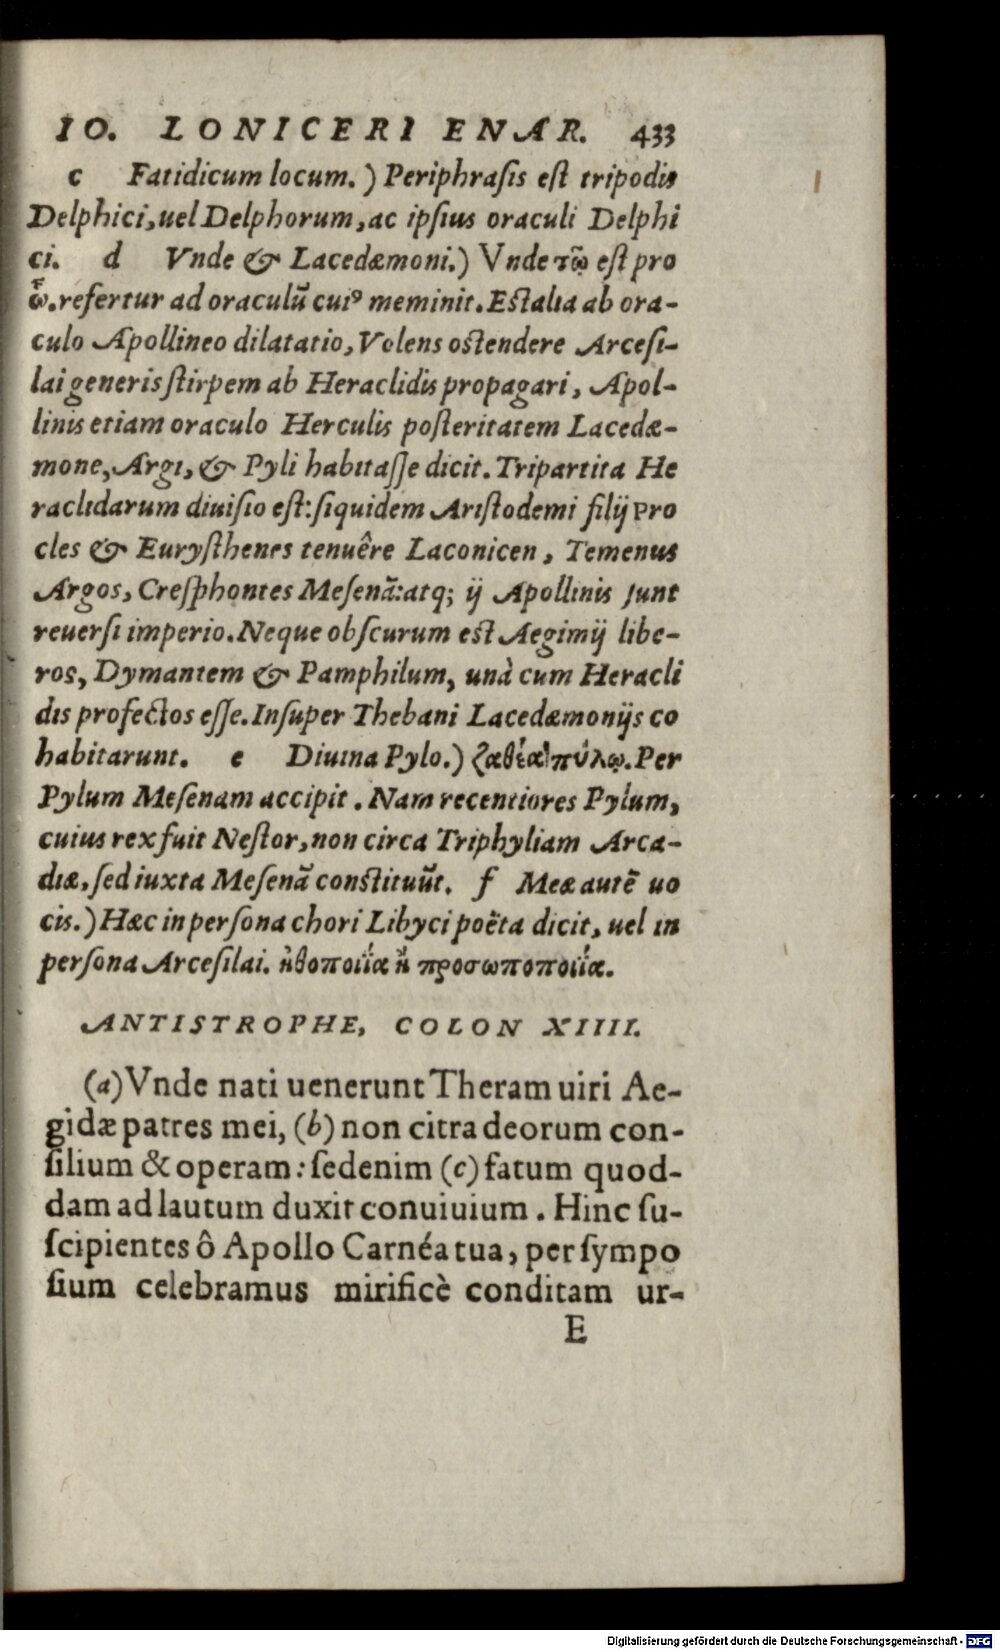 IO. LONICERI ENAR. 433
c Fatidicum locum.) Periphrasis est tripodis
Delphici, uel Delphorum, ac ipsius oraculi Delphi
ci. d Vnde & Lacedæmoni.) Vnde τῶ est pro
ᾧ. refertur ad oraculũ cuiꝰ meminit. Est alia ab ora-
culo Apollineo dilatatio, Volens ostendere Arcesi-
lai generis stirpem ab Heraclidis propagari, Apol-
linis etiam oraculo Herculis posteritatem Lacedæ-
mone, Argi, & Pyli habitasse dicit. Tripartita He
raclidarum diuisio est: siquidem Aristodemi filij Pro
cles & Eurysthenes tenuêre Laconicen, Temenus
Argos, Cresphontes Mesenã: atq; ij Apollinis sunt
reuersi imperio. Neque obscurum est Aegimij libe-
ros, Dymantem & Pamphilum, unà cum Heracli
dis profectos esse. Insuper Thebani Lacedæmonijs co
habitarunt. e Diuina Pylo.) ζαθέα πύλῳ. Per
Pylum Mesenam accipit. Nam recentiores Pylum,
cuius rex fuit Nestor, non circa Triphyliam Arca-
diæ, sed iuxta Mesenã constituũt. f Meæ autẽ uo
cis.) Hæc in persona chori Libyci poëta dicit, uel in
persona Arcesilai. ἠθοποιΐα ἢ προσωποποιΐα.
ANTISTROPHE, COLON XIIII.
(a) Vnde nati uenerunt Theram uiri Ae-
gidæ patres mei, (b) non citra deorum con-
silium & operam: sed enim (c) fatum quod-
dam ad lautum duxit conuiuium. Hinc su-
scipientes ô Apollo Carnéa tua, per sympo
sium celebramus mirificè conditam ur-
E
Digitalisierung gefördert durch die Deutsche Forschungsgemeinschaft - DFG